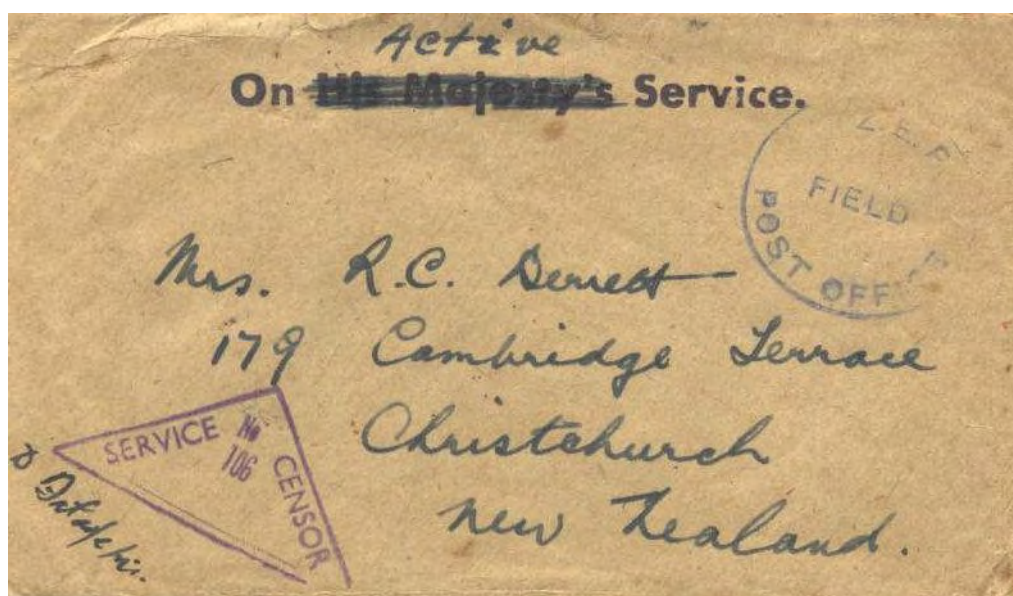 Active
On His Majesty's Service.
Z.E.F
FIELD
POST OFF
Mrs. R.C. Derrett
179 Cambridge Terrace
Christchurch
New Zealand.
SERVICE CENSOR
No
106